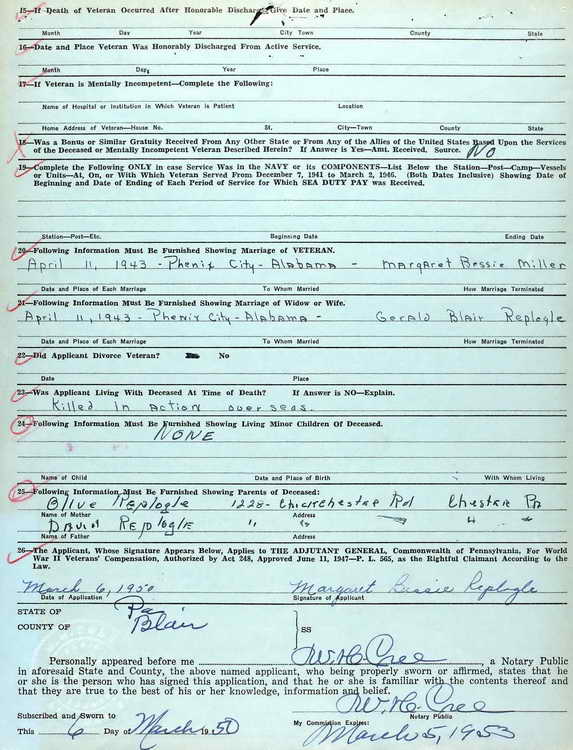 15—If Death of Veteran Occurred After Honorable Discharge Give Date and Place.
Month Day Year City Town County State
16—Date and Place Veteran Was Honorably Discharged From Active Service.
Month Day Year Place
17—If Veteran is Mentally Incompetent—Complete the Following:
Name of Hospital or Institution in Which Veteran is Patient Location
Home Address of Veteran—House No. St. City—Town County State
18—Was a Bonus or Similar Gratuity Received From Any Other State or From Any of the Allies of the United States Based Upon the Services
of the Deceased or Mentally Incompetent Veteran Described Herein? If Answer is Yes—Amt. Received. Source. NO
19—Complete the Following ONLY in case Service Was in the NAVY or its COMPONENTS—List Below the Station—Post—Camp—Vessels
or Units—At, On, or With Which Veteran Served From December 7, 1941 to March 2, 1946. (Both Dates Inclusive) Showing Date of
Beginning and Date of Ending of Each Period of Service for Which SEA DUTY PAY was Received.
Station—Post—Etc. Beginning Date Ending Date
20—Following Information Must Be Furnished Showing Marriage of VETERAN.
April 11, 1943 - Phenix City - Alabama - Margaret Bessie Miller
Date and Place of Each Marriage To Whom Married How Marriage Terminated
21—Following Information Must Be Furnished Showing Marriage of Widow or Wife.
April 11, 1943 - Phenix City - Alabama - Gerald Blair Replogle
Date and Place of Each Marriage To Whom Married How Marriage Terminated
22—Did Applicant Divorce Veteran? No
Date Place
23—Was Applicant Living With Deceased At Time of Death? If Answer is NO—Explain.
Killed in action overseas.
24—Following Information Must Be Furnished Showing Living Minor Children Of Deceased.
NONE
Name of Child Date and Place of Birth With Whom Living
25—Following Information Must Be Furnished Showing Parents of Deceased:
Olive Replogle 1228- Chichester Rd Chester Pa
Name of Mother Address
David Replogle " " " " "
Name of Father Address
26—The Applicant, Whose Signature Appears Below, Applies to THE ADJUTANT GENERAL, Commonwealth of Pennsylvania, For World
War II Veterans' Compensation, Authorized by Act 248, Approved June 11, 1947—P. L. 565, as the Rightful Claimant According to the
Law.
March 6, 1950 Margaret Bessie Replogle
Date of Application Signature of Applicant
STATE OF Pa
COUNTY OF Blair SS
Personally appeared before me W. H. Cree, a Notary Public
in aforesaid State and County, the above named applicant, who being properly sworn or affirmed, states that he
or she is the person who has signed this application, and that he or she is familiar with the contents thereof and
that they are true to the best of his or her knowledge, information and belief.
W. H. Cree
Subscribed and Sworn to Notary Public
This 6 Day of March 1950 My Commission Expires: March 5, 1953